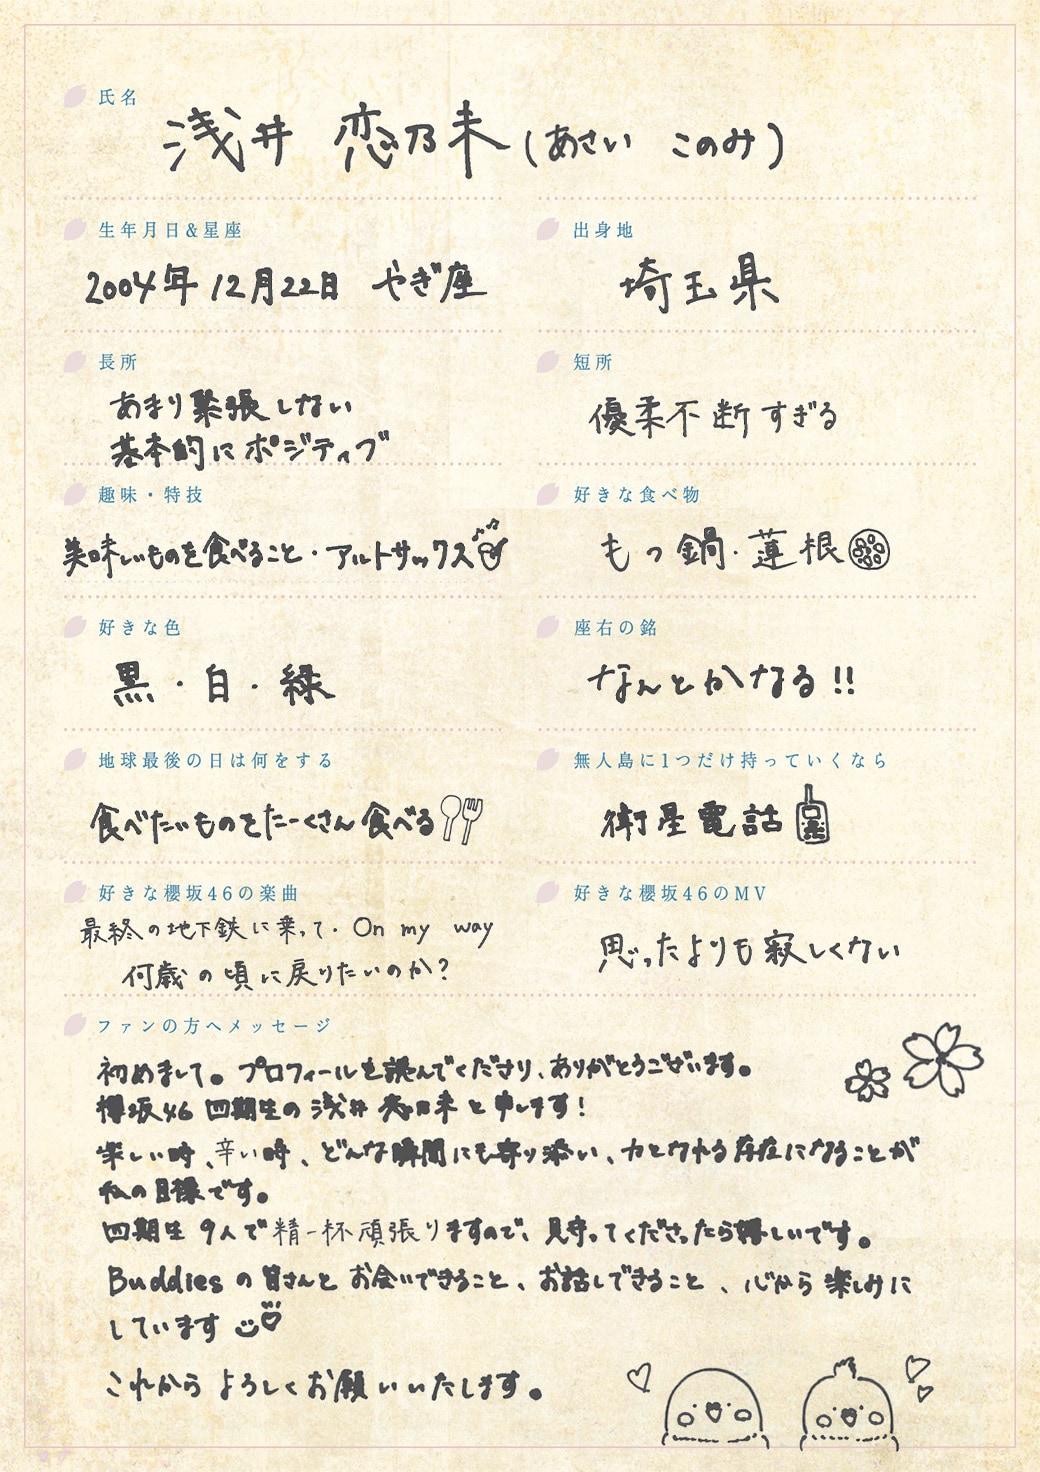 氏名
浅井 恋乃未(あさい このみ)
生年月日&星座
2004年 12月22日 やぎ座
出身地
埼玉県
長所
あまり緊張しない
基本的にポジティブ
短所
優柔不断すぎる
趣味・特技
美味しいものを食べること・アルトサックス
好きな食べ物
もつ鍋・蓮根
好きな色
黒・白・緑
座右の銘
なんとかなる!!
地球最後の日は何をする
食べたいものをたーくさん食べる
無人島に1つだけ持っていくなら
衛星電話
好きな櫻坂46の楽曲
最終の地下鉄に乗って・On my way
何歳の頃に戻りたいのか?
好きな櫻坂46のMV
思ったよりも寂しくない
ファンの方へメッセージ
初めまして。プロフィールを読んでくださり、ありがとうございます。
櫻坂46 四期生の浅井恋乃未と申します!
楽しい時、辛い時、どんな瞬間にも寄り添い、力となれる存在になることが
私の目標です。
四期生 9人で精一杯頑張りますので、見守ってくださったら嬉しいです。
Buddiesの皆さんとお会いできること、お話しできること、心から楽しみに
しています
これからよろしくお願いいたします。